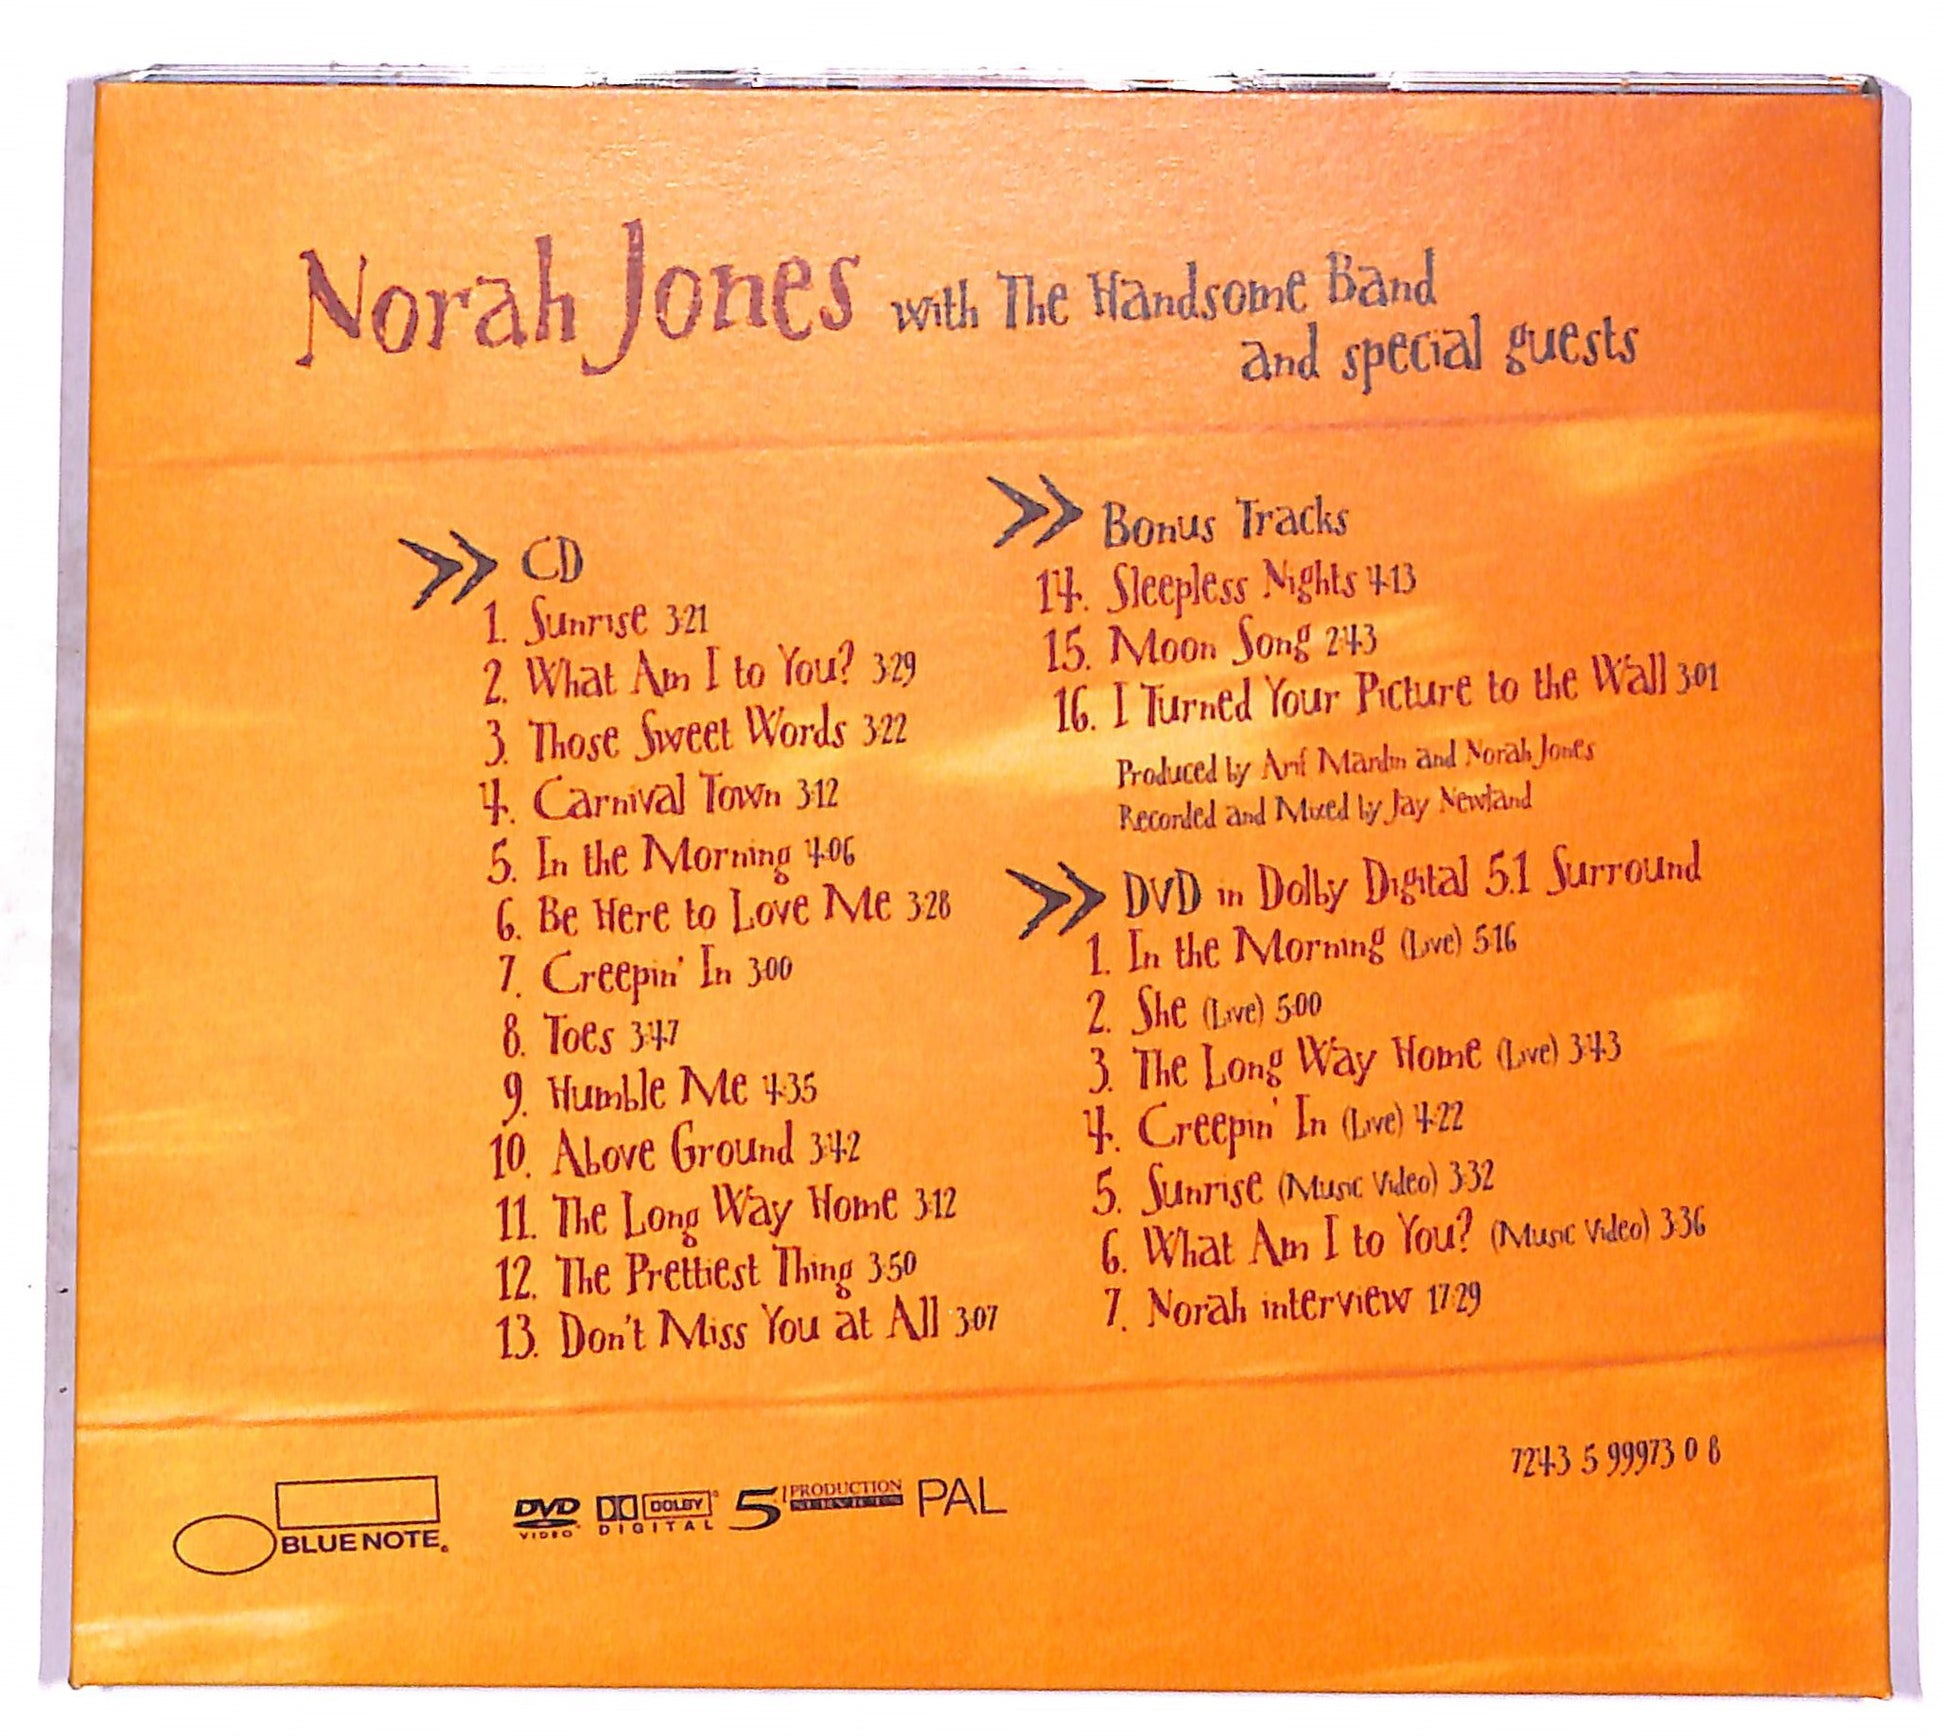 Norah Jones with The Handsome Band
and special guests
CD
1. Sunrise 3:21
2. What Am I to You? 3:29
3. Those Sweet Words 3:22
4. Carnival Town 3:12
5. In the Morning 4:06
6. Be Here to Love Me 3:28
7. Creepin' In 3:00
8. Toes 3:47
9. Humble Me 4:35
10. Above Ground 3:42
11. The Long Way Home 3:12
12. The Prettiest Thing 3:50
13. Don't Miss You at All 3:07
Bonus Tracks
14. Sleepless Nights 4:13
15. Moon Song 2:43
16. I Turned Your Picture to the Wall 3:01
Produced by Arif Mardin and Norah Jones
Recorded and Mixed by Jay Newland
DVD in Dolby Digital 5.1 Surround
1. In the Morning (Live) 5:16
2. She (Live) 5:00
3. The Long Way Home (Live) 3:43
4. Creepin' In (Live) 4:22
5. Sunrise (Music Video) 3:32
6. What Am I to You? (Music Video) 3:36
7. Norah interview 17:29
7243 5 99973 0 8
BLUE NOTE
DVD VIDEO
DOLBY DIGITAL
5.1 PRODUCTION SERVICES
PAL